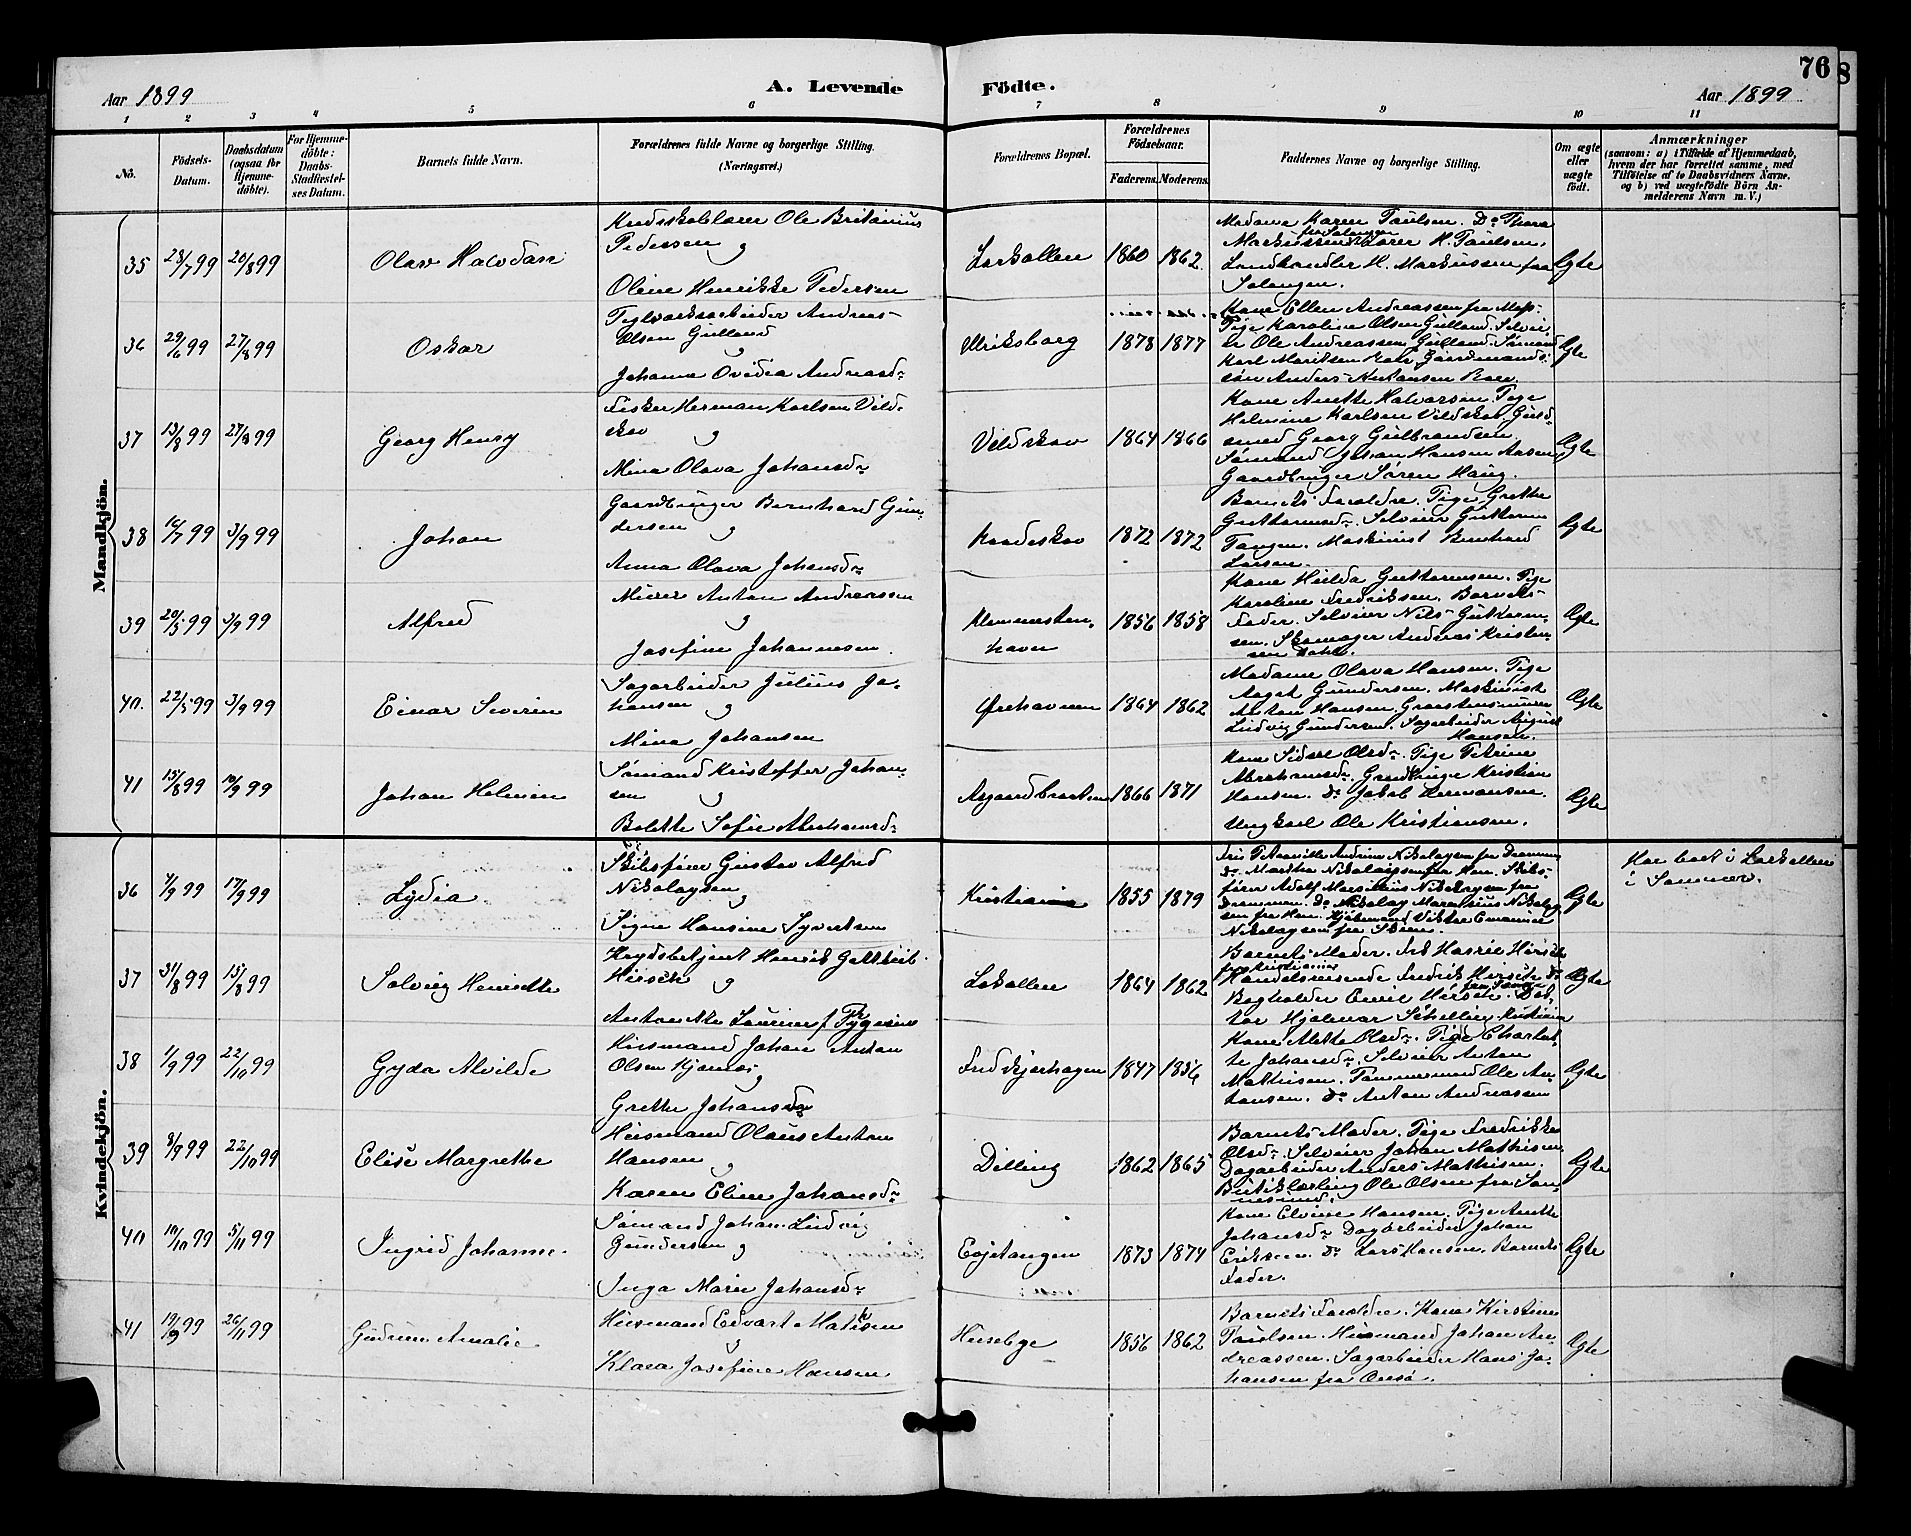 76
Aar 1899
A. Levende Födte.
Aar 1899
1 2 3 4 5 6 7 8 9 10 11
No.
Födsels-Datum.
Daabsdatum (ogsaa for Hjemme-döbte).
For Hjemme-döbte: Daabs Stadfæstelses Datum.
Barnets fulde Navn.
Forældrenes fulde Navne og borgerlige Stilling.
(Næringsvei.)
Forældrenes Bopæl.
Forældrenes Födselsaar.
Faderens. Moderens.
Faddernes Navne og borgerlige Stilling.
Om ægte eller uægte födt.
Anmærkninger
(saasom: a) i Tilfælde af Hjemmedaab,
hvem der har forrettet samme, med
Tilföielse af to Daabsvidners Navne.
og b) ved uægtefödte Börn An-
melderens Navn m. V.)
Mandkjön.
35 28/7 99 20/8 99 Olav Halvdan
Kredsskolelærer Ole Britanius
Pedersen og
Oline Henrikke Pedersen
Larkollen 1860 1862
Madame Karen Paulsen. Do Thora
Markussen fra Salangen Lærer H. Paulsen.
Landhandler H. Markussen fra
Salangen.
Ægte
36 29/6 99 27/8 99 Oskar
Teglværksarbeider Andreas
Olsen Gulland og
Johanna Ovidia Andreasdr
1878 1877
Kone Ellen Andreassen fra Moss.
Pige Karoline Olsen Gulland. Selvei-
er Ole Andreassen Gulland. Sømand
Karl Mariusen Gaardmands-
søn Anders Antonsen Roer.
Ægte
37 13/8 99 27/8 99 Georg Henry
Fisker Herman Karlsen Vild-
skov og
Mina Olava Johansdr
Vildskov 1864 1866
Kone Anette Halvorsen. Pige
Helmine Karlsen Vildskov. Guld-
smed Georg Gulbrandsen
Sømand Johan Hansen Aasen
Gaardbruger Søren Haug.
Ægte
38 16/7 99 3/9 99 Johan
Gaardbruger Bernhard Gun-
dersen og
Anna Olava Johansdr
1872 1872
Barnets Forældre. Pige Grethe
Guttormsdr. Selveier Guttorm
Tangen. Maskinist Bernhard
Larsen.
Ægte
39 20/5 99 3/9 99 Alfred
Murer Anton Andreassen
og
Josefine Johannesen.
havn 1856 1858
Kone Hulda Guttormsen. Pige
Karoline Fredriksen. Barnets
Fader. Selveier Nils Guttorm-
sen. Skomager Andreas Kristen-
sen Dahl.
Ægte
40. 22/5 99 3/9 99 Einar Severin
Sagarbeider Julius Jo-
hansen og
Mina Johansen
Ørehavnen 1864 1862
Madame Olava Hansen. Pige
Aagot Gundersen. Maskinist
Anton Hansen. Graastensmurer
Ludvig Gundersen. Sagarbeider August
Hansen.
Ægte
41 15/8 99 10/9 99 Johan Helmin
Sømand Kristoffer Johan-
sen og
Bolette Sofie Abrahamsdr
Asgaardbraaten 1866 1871
Kone Sidsel Olsdr. Pige Petrine
Abrahamsdr. Gaardbruger Kristian
Hansen. Do Jakob Hermansen.
Ungkarl Ole Kristiansen.
Ægte
Kvindekjön.
36 4/9 99 17/9 99 Lydia
Skibsfører Gustav Alfred
Nikolaysen og
Signe Hansine Syvertsen
Kristiania 1855 1879
Andrine Nikolaysen fra Drammen
Do Martha Nikolaysen fra Hem. Skibs-
fører Adolf Marsilius Nikolaysen fra
Drammen. Do Nikolay Marentius Nikolay-
sen fra Hem. Viktor Emanuel
Nikolaysen fra Skien.
Ægte
Har boet i Larkollen
i Sommer.
37 31/8 99 15/8 99 Solveig Henriette
Henrik Gottlieb
Hirsch og
Antonette Laurine f.
Lakollen 1864 1862
Barnets Moder. Frk Harrie Hirsch
fra Kristiania
Handelsreisende Fredrik Hirsch. Do
Bogholder Emil Hirsch. Dok-
tor Hjalmar Schilling Kristiania
Ægte
38 1/9 99 22/10 99 Gyda Alvilde
Husmand Johan Anton
Olsen og
Grethe Johansdr
1847 1856
Kone Mette Olsdr. Pige Charlot-
te Johansdr. Selveier Anton
Mathisen. Tømmermand Ole An-
tonsen. Do Anton Andreassen
Ægte
39 8/9 99 22/10 99 Elise Margrethe
Husmand Olaus Anton
Hansen og
Karen Eline Johansdr
Dilling 1862 1865
Barnets Moder. Pige Fredrikke
Olsdr. Selveier Johan Mathisen
Dagarbeider Anders Mathisen.
Butiklærling Ole Olsen fra Son-
nesund.
Ægte
40 10/10 99 5/11 99 Ingrid Johanne.
Sømand Johan Ludvig
Gundersen og
Inga Marie Johansdr
Evjetangen 1873 1874
Kone Elvine Hansen. Pige Anette
Johansdr Dagarbeider Johan
Eriksen. Do Lars Hansen. Barnets
Fader.
Ægte
41 19/9 99 26/11 99 Gudrun Amalie
Husmand Edvart Mathisen
og
Klara Josefine Hansen
Huseby 1856 1862
Barnets Forældre. Kone Kirstine
Paulsen. Husmand Johan An-
dreassen. Sagarbeider Hans Jo-
hansen fra Onsø.
Ægte